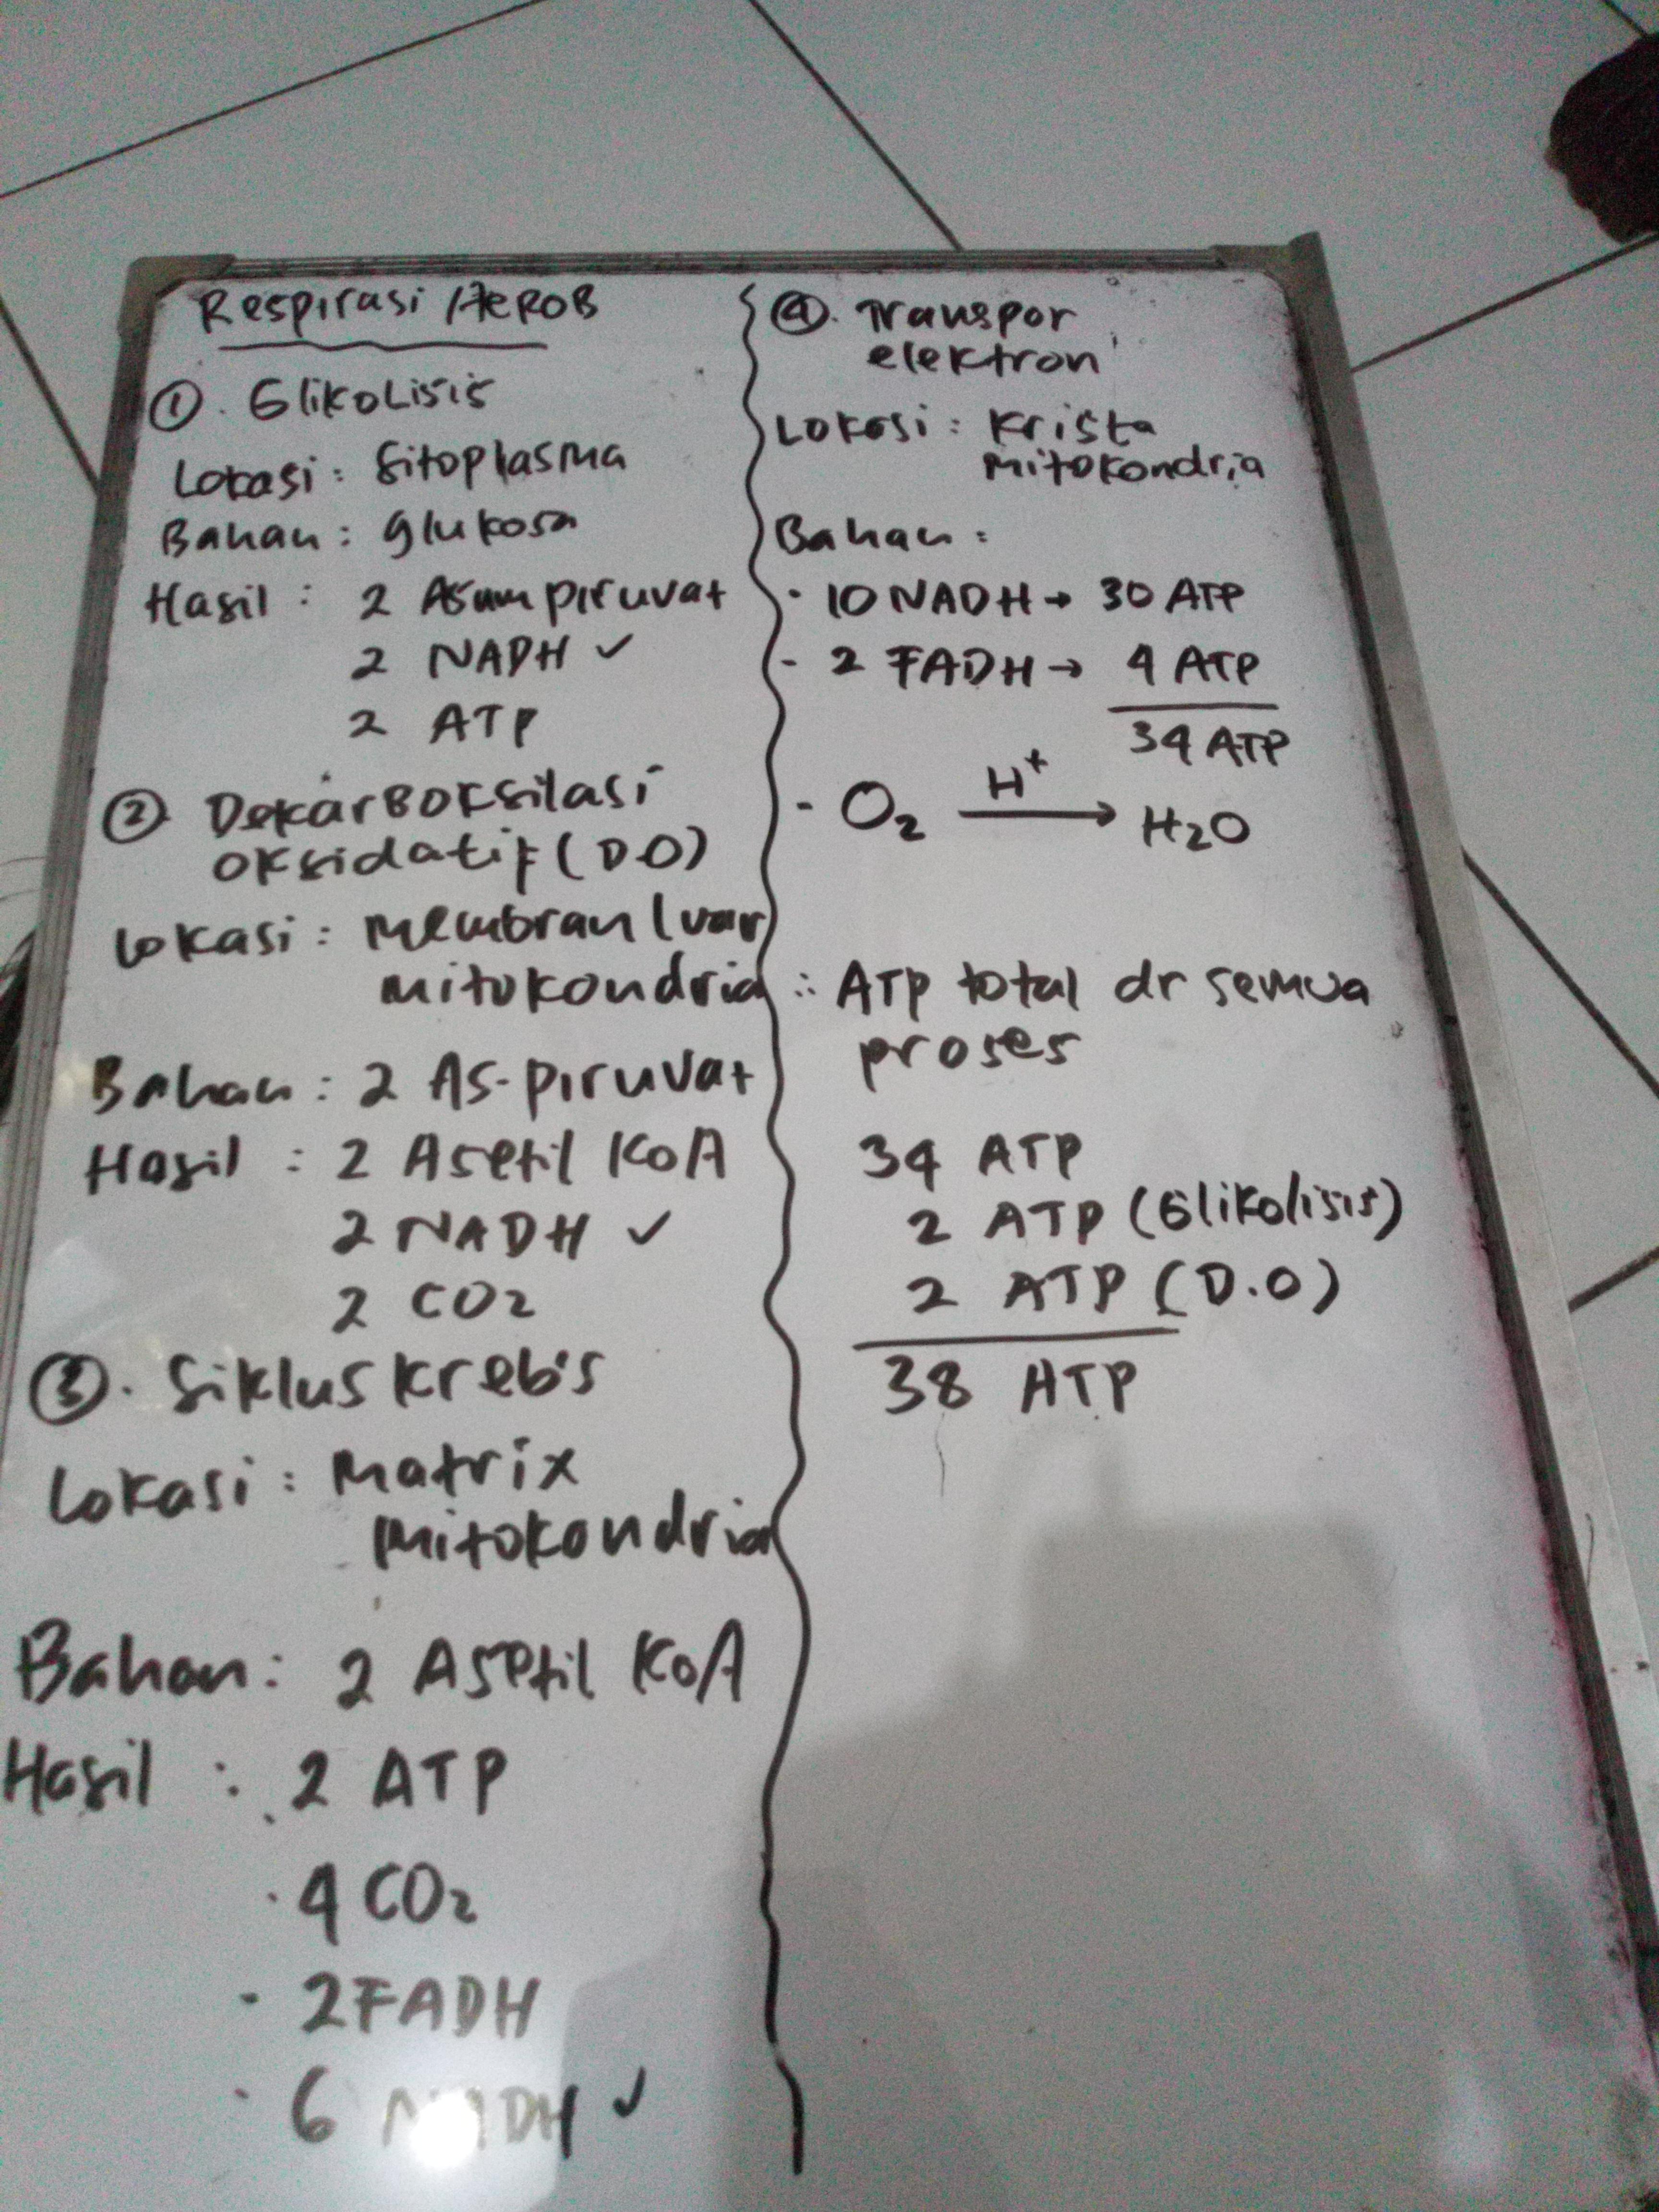 Respirasi AEROB
① . GlikoLisis
Lokasi : Sitoplasma
Bahan : glukosa
Hasil : 2 Asam piruvat
2 NADH ✓
2 ATP
② Dekarboksilasi
oksidatif (D.O)
Lokasi : Membran luar
mitokondria
Bahan : 2 As. piruvat
Hasil : 2 Asetil KoA
2 NADH ✓
2 CO2
③ . Siklus kreb's
Lokasi : Matrix
Mitokondria
Bahan : 2 Asetil KoA
Hasil : 2 ATP
· 4 CO2
- 2 FADH
· 6 NADH ✓
④. Transpor
elektron
Lokasi : Krista
mitokondria
Bahan :
· 10 NADH → 30 ATP
- 2 FADH → 4 ATP
34 ATP
- O2 H+ → H2O
∴ ATP total dr semua
proses
34 ATP
2 ATP (Glikolisis)
2 ATP (D.O)
38 ATP